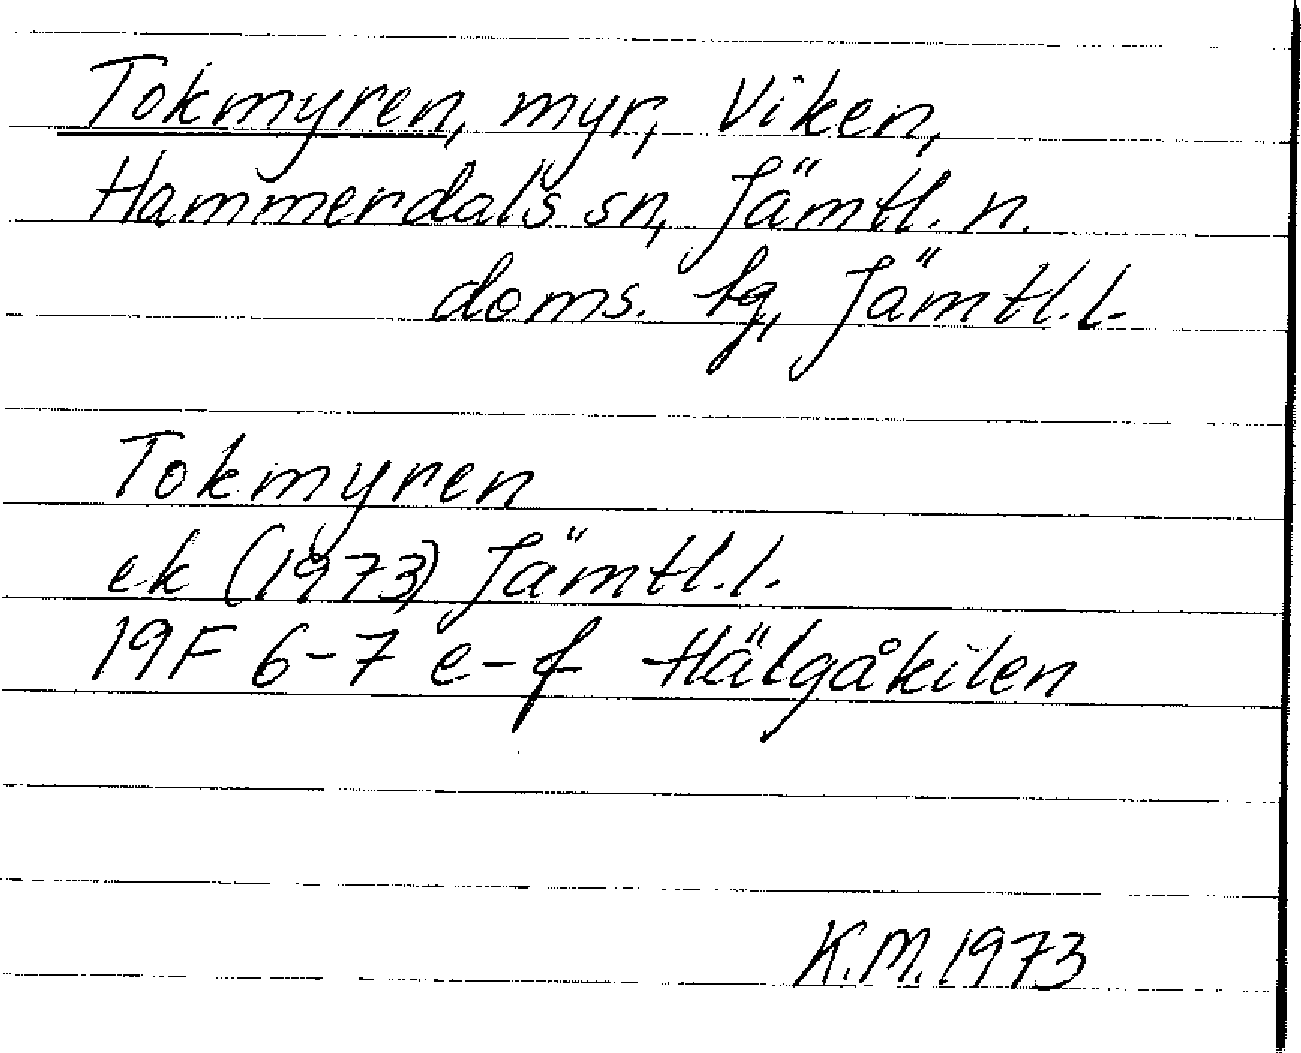 Tokmyren, myr, Viken,
Hammerdals sn, Jämtl. n.
doms. tg, Jämtl.l.
Tokmyren
ek (1973) Jämtl.l.
19F 6-7 e-f Hälgåkilen
K.M. 1973